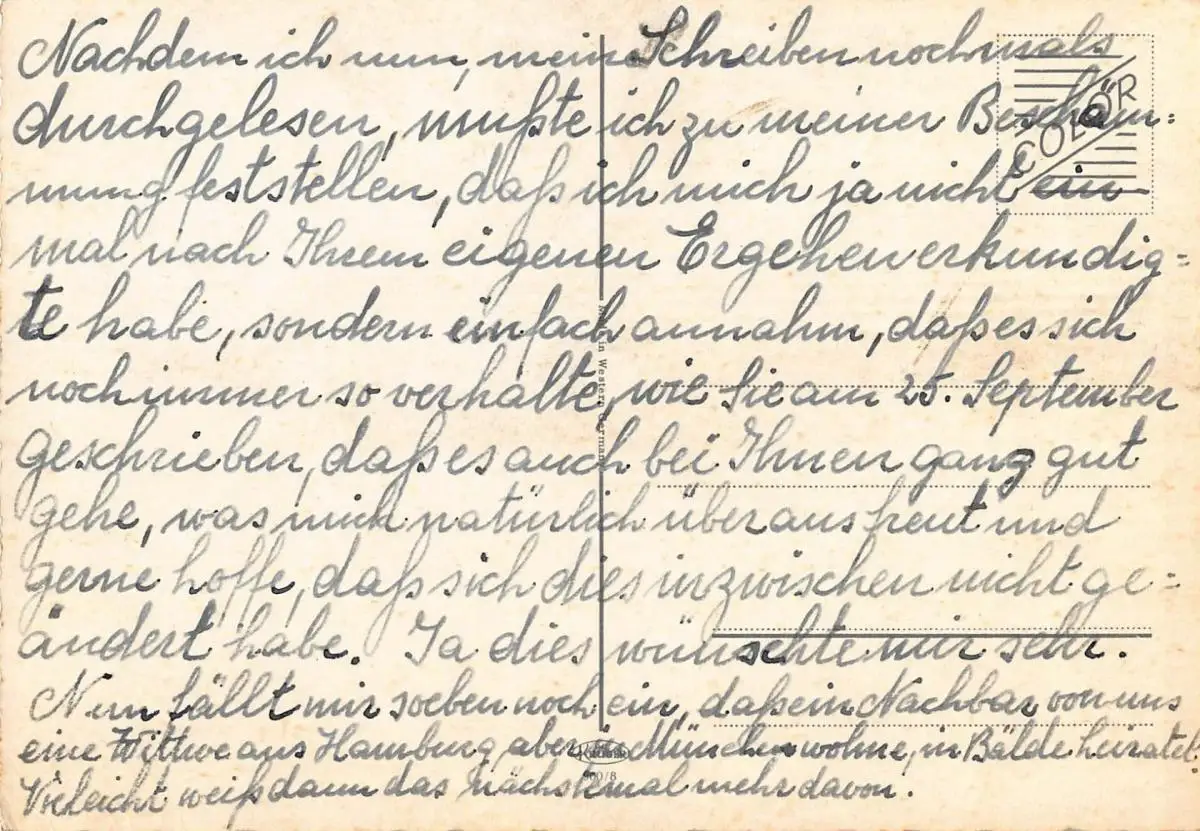 Nachdem ich nun, mein Schreiben nochmals
COLOR
durchgelesen, mußte ich zu meiner Beschäm=
mung feststellen, daß ich mich ja nicht ein
mal nach Ihrem eigenen Ergehen erkundig=
te habe, sondern einfach annahm, daß es sich
noch immer so verhalte, wie Sie am 25. September
geschrieben, daß es auch bei Ihnen ganz gut
gehe, was mich natürlich überaus freut und
gerne hoffe, daß sich dies inzwischen nicht ge=
ändert habe. Ja dies wünschte mir sehr.
Nun fällt mir soeben noch ein, daß ein Nachbar von uns
eine Wittwe aus Hamburg, aber München wohne, in Bälde heiratet.
Vieleicht weiß dann das nächstemal mehr davon.
in Western Germany
900/8